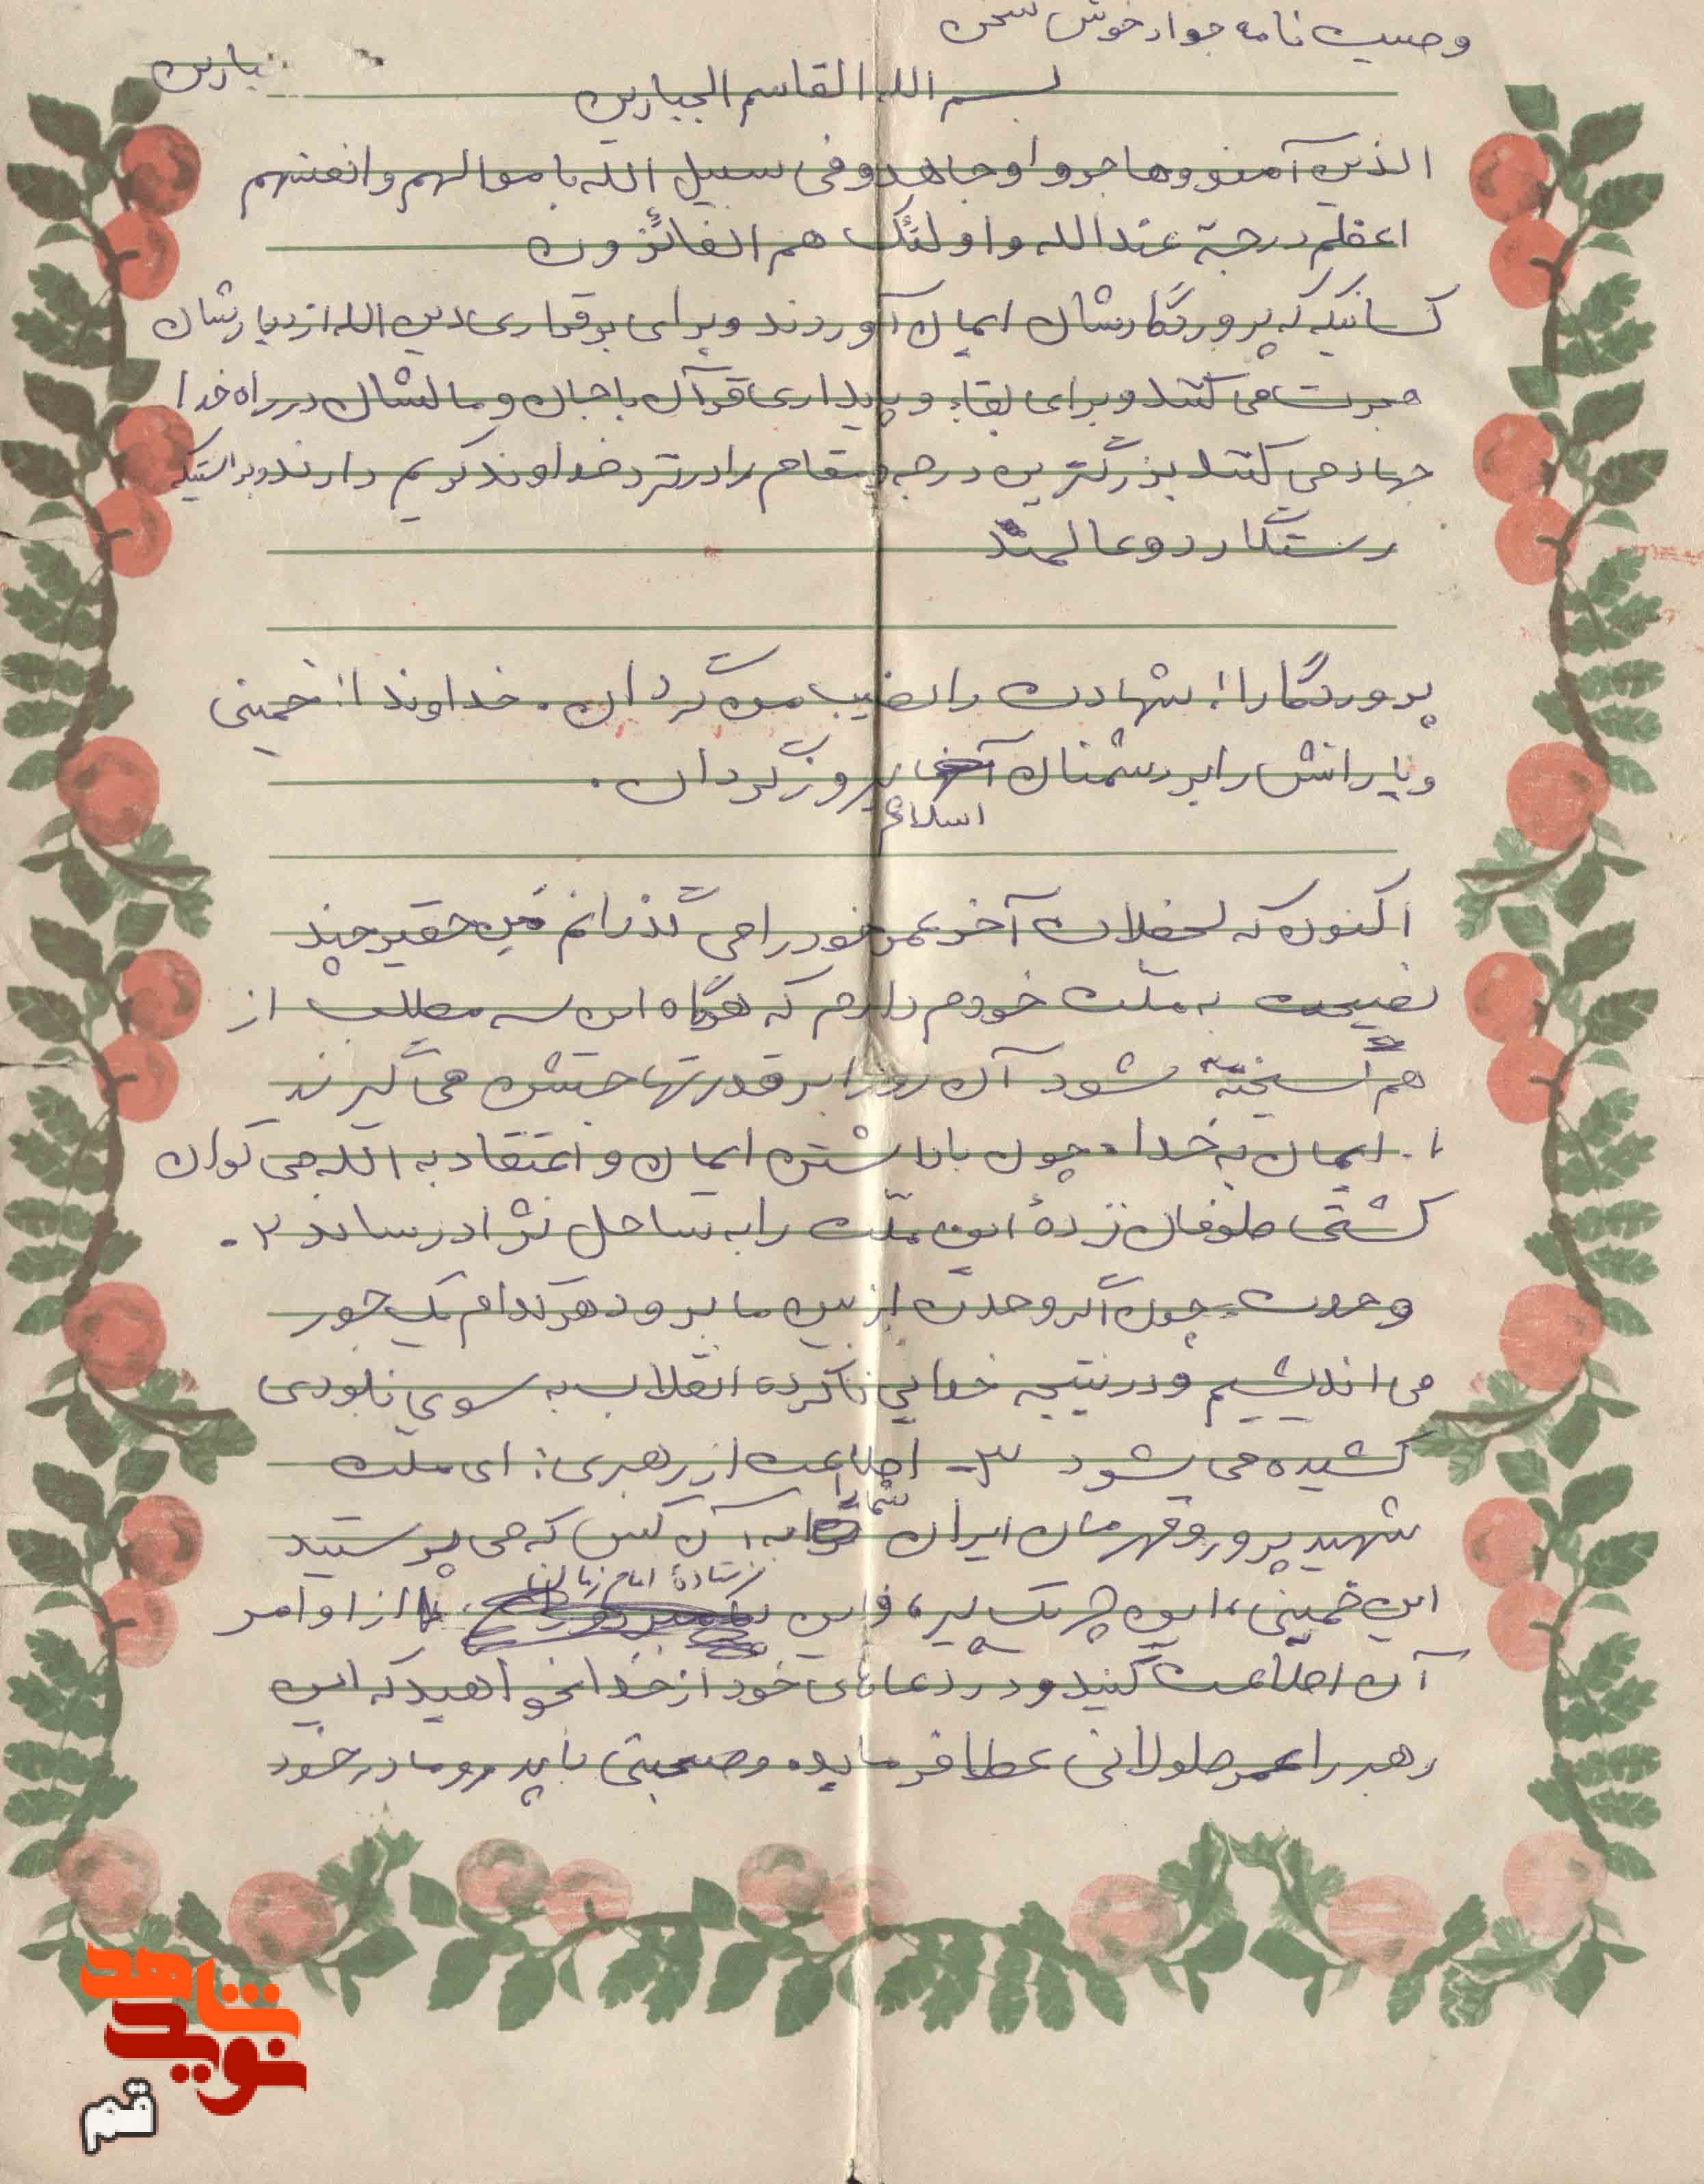 وصیت نامه جواد خوش سخن
بسم الله القاسم الجبارین
الذین آمنو وهاجروا وجاهدو فی سبیل الله باموالهم وانفسهم
اعظم درجة عندالله واولئک هم الفائزون
کسانیکه که پروردگارشان ایمان آوردند وبرای برقراری دین الله از دیارشان
هجرت می کنند وبرای بقاء وپایداری قرآن باجان ومالشان در راه خدا
جهاد می کنند بزرگترین درجه ومقام را در نزد خداوند کریم دارند وبراستیکه
رستگار دوعالمند
پروردگارا! شهادت را نصیب من گردان. خداوندا! خمینی
ویارانش را بر دشمنان اسلام پیروز گردان.
اکنون که لحظات آخر عمر خود را می گذرانم من حقیر چند
نصیحت به ملت خودم دارم که هرگاه این سه مطلب از
هم گسیخته شود آن روز ابرقدرتها جشن می گیرند
۱. ایمان به خدا. چون با داشتن ایمان و اعتقاد به الله می توان
کشتی طوفان زدهٔ این ملت را به ساحل نژاد رساند ۲.
وحدت. چون اگر وحدت از بین ما برود هرکدام یک جور
می اندیشیم ودر نتیجه خدایی ناکرده انقلاب به سوی نابودی
کشیده می شود ۳- اطاعت از رهبری: ای ملت
شهید پرور وقهرمان ایران شما را به آن کس که می پرستید
این خمینی، این چریک پیر، و این فرستادهٔ امام زمان از اوامر
آن اطاعت کنید ودر دعاهای خود از خدا بخواهید که این
رهبر را عمر طولانی عطا فرماید. وصحبتی با پدر ومادر خود
شاهد
نوید
قم